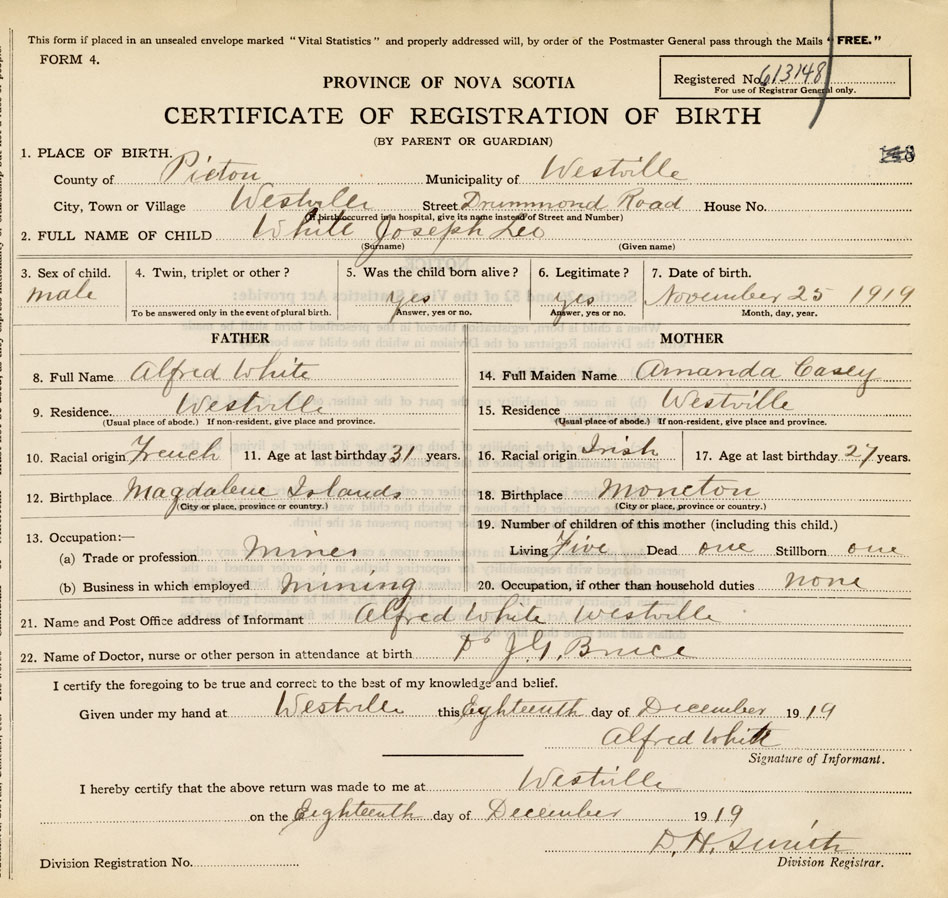 This form if placed in an unsealed envelope marked "Vital Statistics" and properly addressed will, by order of the Postmaster General pass through the Mails "FREE."
FORM 4.
Registered No. 613148
For use of Registrar General only.
PROVINCE OF NOVA SCOTIA
CERTIFICATE OF REGISTRATION OF BIRTH
(BY PARENT OR GUARDIAN)
1. PLACE OF BIRTH.
8
County of Picton Municipality of Westville
City, Town or Village Westville Street Drummond Road House No.
(If birth occurred in a hospital, give its name instead of Street and Number)
2. FULL NAME OF CHILD White Joseph Leo
(Surname) (Given name)
3. Sex of child. 4. Twin, triplet or other? 5. Was the child born alive? 6. Legitimate? 7. Date of birth.
male yes yes November 25 1919
To be answered only in the event of plural birth. Answer, yes or no. Answer, yes or no. Month, day, year.
FATHER MOTHER
8. Full Name Alfred White 14. Full Maiden Name Amanda Casey
9. Residence. Westville 15. Residence Westville
(Usual place of abode.) If non-resident, give place and province. (Usual place of abode.) If non-resident, give place and province.
10. Racial origin French 11. Age at last birthday 31 years. 16. Racial origin Irish 17. Age at last birthday 27 years.
12. Birthplace Magdalene Islands 18. Birthplace Moncton
(City or place, province or country.) (City or place, province or country.)
13. Occupation:— 19. Number of children of this mother (including this child.)
(a) Trade or profession Miner Living Five Dead one Stillborn one
(b) Business in which employed Mining 20. Occupation, if other than household duties none
21. Name and Post Office address of Informant Alfred White Westville
22. Name of Doctor, nurse or other person in attendance at birth Dr J.G. Bruce
I certify the foregoing to be true and correct to the best of my knowledge and belief.
Given under my hand at Westville this Eighteenth day of December 1919
Alfred White
Signature of Informant.
I hereby certify that the above return was made to me at Westville
on the Eighteenth day of December 1919
D. H. Smith
Division Registration No. Division Registrar.